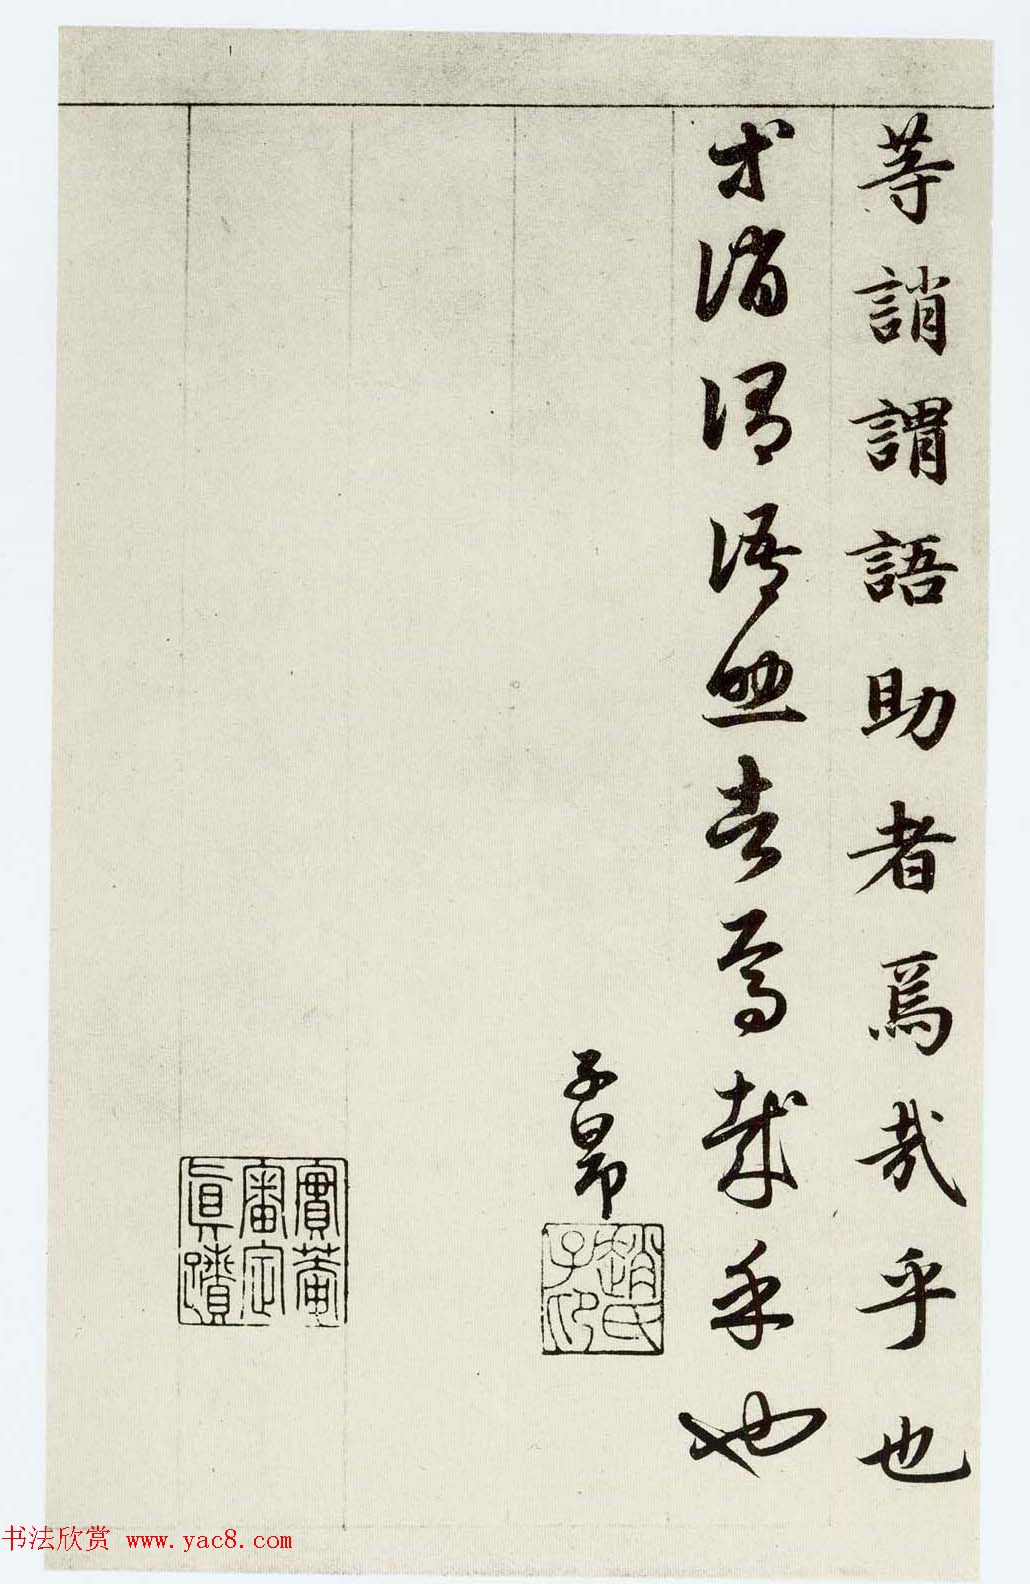 等誚謂語助者焉哉乎也
等誚謂語助者焉哉乎也
子昂
趙氏子印
實蓭審定真蹟
书法欣赏 www.yac8.com